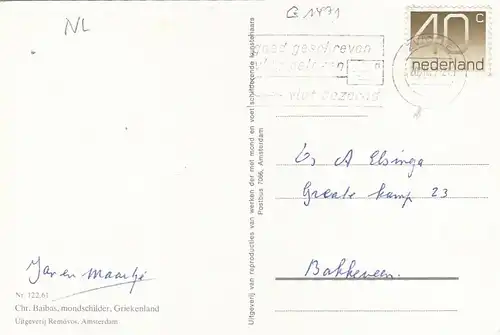 NL
G 1471
40 c
nederland
goed geschreven
vlot gelezen
vlot bezorgd
A Elsinga
Greate kamp 23
Bakkeveen.
Jan en Maartje
Nr. 122.61
Chr. Baibas, mondschilder, Griekenland
Uitgeverij Removos, Amsterdam
Uitgeverij van reproducties van werken der met mond en voet schilderende kunstenaars
Postbus 7066, Amsterdam